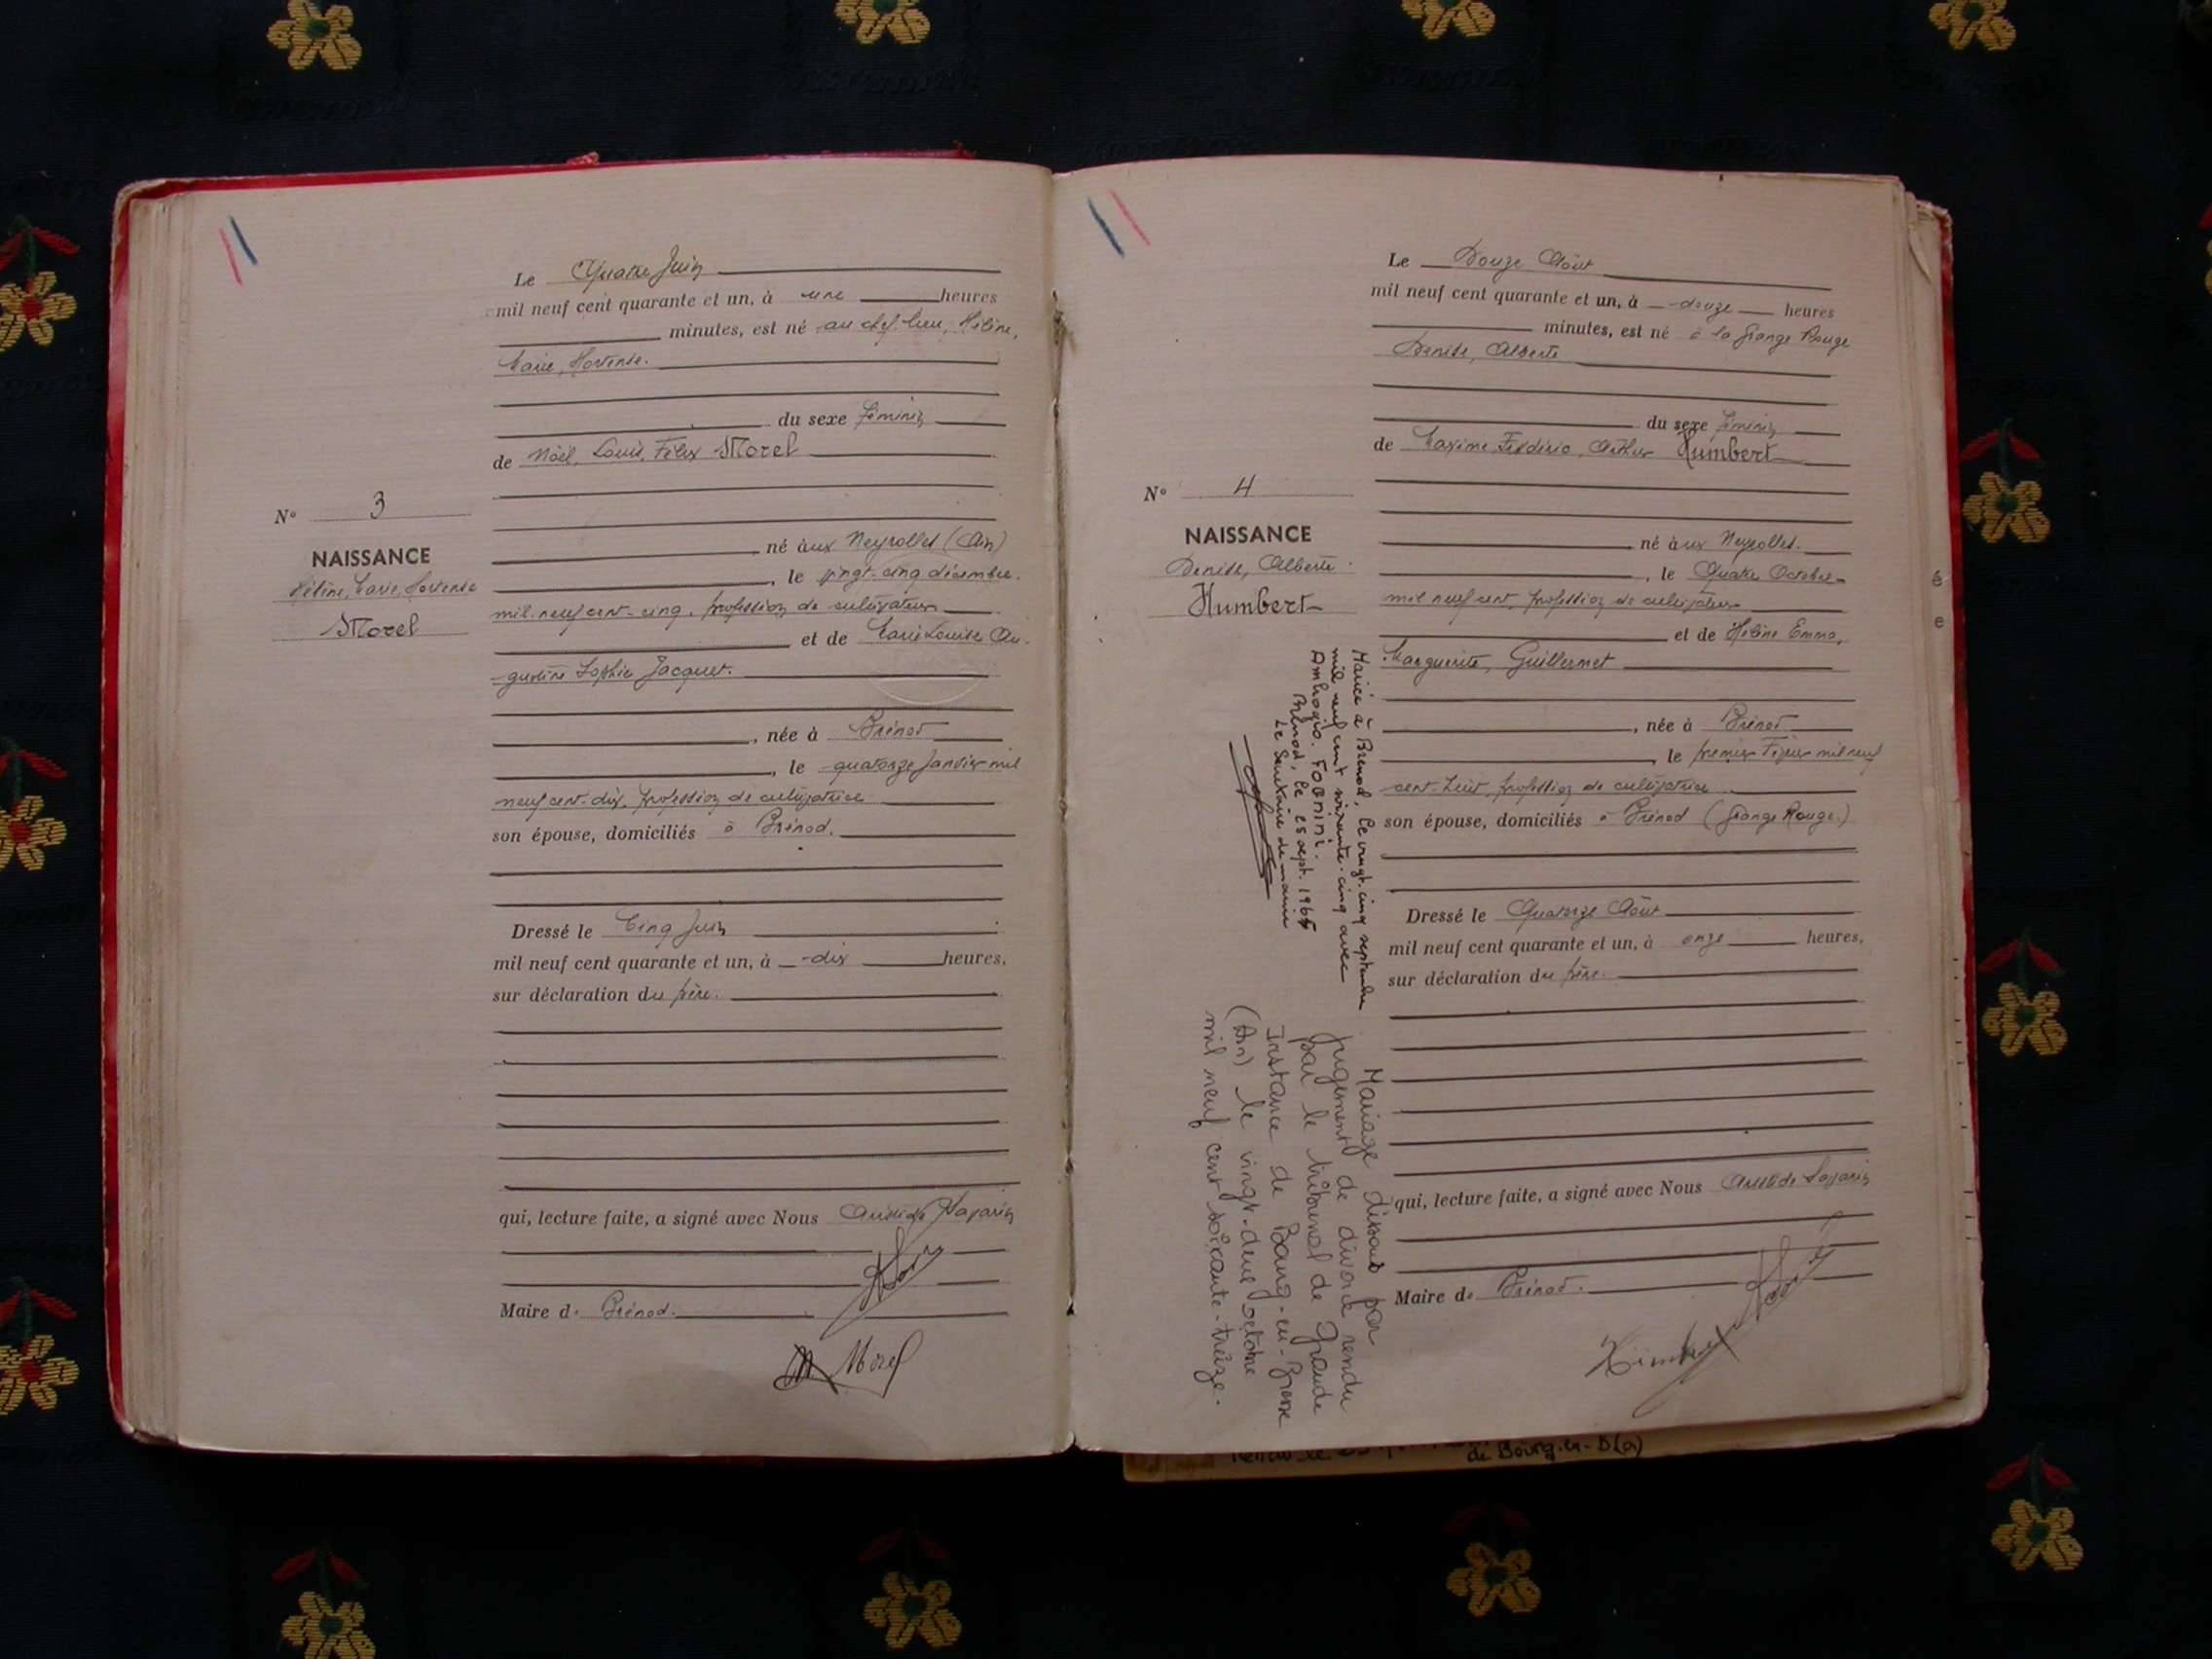 Le Quatre Juin
mil neuf cent quarante et un, à une heures
minutes, est né au chef-lieu, Hélène,
Marie, Hortense.
du sexe féminin
de Noël, Louis, Félix Morel
N° 3
NAISSANCE
Hélène, Marie, Hortense
Morel
né àux Neyrolles (Ain)
, le vingt-cinq décembre
mil neuf cent-cinq, profession de cultivateur
et de Marie Louise Au-
gustine Sophie Jacquet.
, née à Brénod
, le quatorze Janvier mil
neuf cent-dix, profession de cultivatrice
son épouse, domiciliés à Brénod.
Dressé le Cinq Juin
mil neuf cent quarante et un, à dix heures,
sur déclaration du père.
qui, lecture faite, a signé avec Nous Aristide
Maire de Brénod.
Morel
Le Douze Août
mil neuf cent quarante et un, à douze heures
minutes, est né à la Grange Rouge
Denise, Alberte
du sexe féminin
de Maxime Frédéric, Arthur Humbert
N° 4
NAISSANCE
Denise, Alberte
Humbert
né àux Neyrolles.
, le Quatre Octobre
mil neuf cent, profession de cultivateur
et de Hélène Emma,
Marguerite, Guillermet
, née à Brénod
, le premier Février mil neuf
cent-huit, profession de cultivatrice
son épouse, domiciliés à Brénod (Grange Rouge.)
Dressé le Quatorze Août
mil neuf cent quarante et un, à onze heures,
sur déclaration du père.
qui, lecture faite, a signé avec Nous Aristide
Maire de Brénod.
Mariée à Brénod, le vingt-cinq septembre
mil neuf cent soixante-cinq avec
Ambrogio. FOONINI.
Brénod, le 25 sept. 1965
Le Secrétaire de mairie
Mariage dissout par
jugement de divorce rendu
par le tribunal de Grande
Instance de Bourg-en-Bresse
(Ain) le vingt-deux octobre
mil neuf cent soixante-treize.
de Bourg-en-B(a)